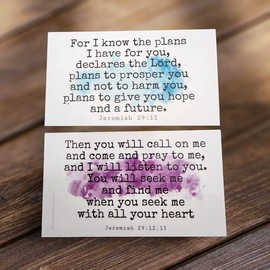 For I know the plans
I have for you,
declares the Lord,
plans to prosper you
and not to harm you,
plans to give you hope
and a future.
Jeremiah 29:11
Then you will call on me
and come and pray to me,
and I will listen to you.
You will seek me
and find me
when you seek me
with all your heart
Jeremiah 29:12,13